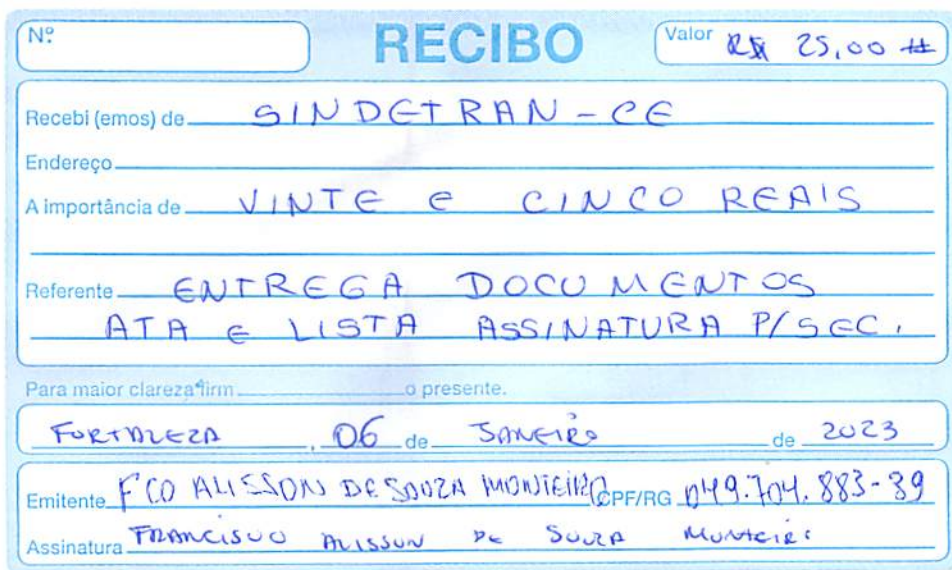 Nº RECIBO Valor R$ 25,00 #
Recebi (emos) de SINDETRAN-CE
Endereço
A importância de VINTE e CINCO REAIS
Referente ENTREGA DOCUMENTOS
ATA e LISTA ASSINATURA P/SEC.
Para maior clareza firm o presente.
FORTALEZA, 06 de JANEIRO de 2023
Emitente FCO ALISSON DE SOUZA MONTEIRO CPF/RG 049.704.883-39
Assinatura FRANCISCO ALISSON DE SOUZA MONTEIRO